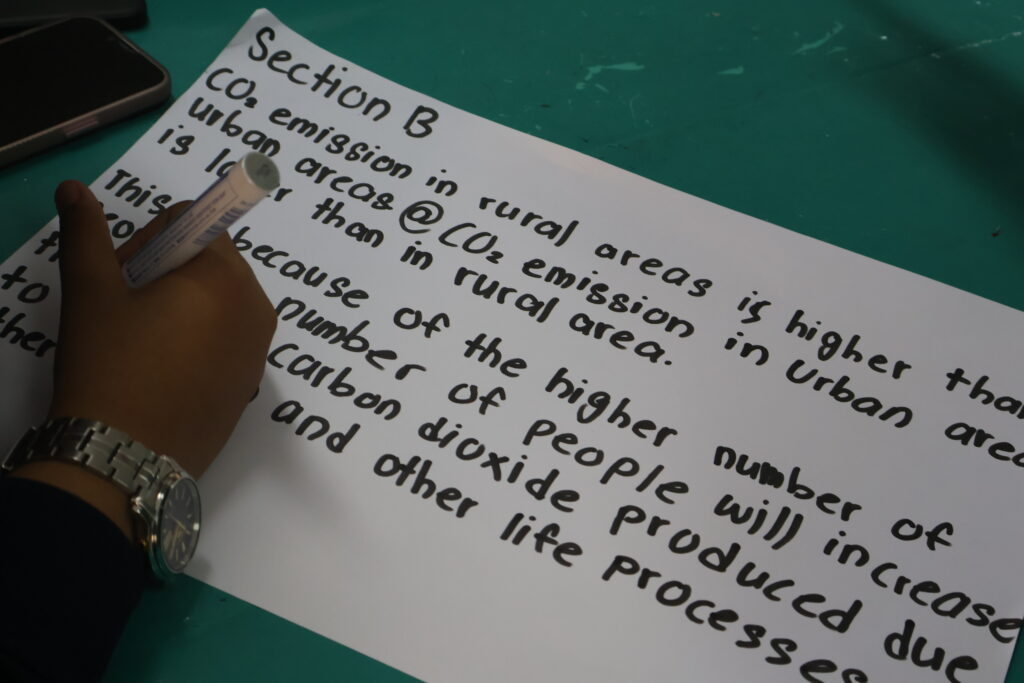 Section B
CO₂ emission in rural areas is higher than
urban areas @ CO₂ emission in urban area
is lower than in rural area.
This because of the higher number of
number of people will increase
to carbon dioxide produced due
and other life processes